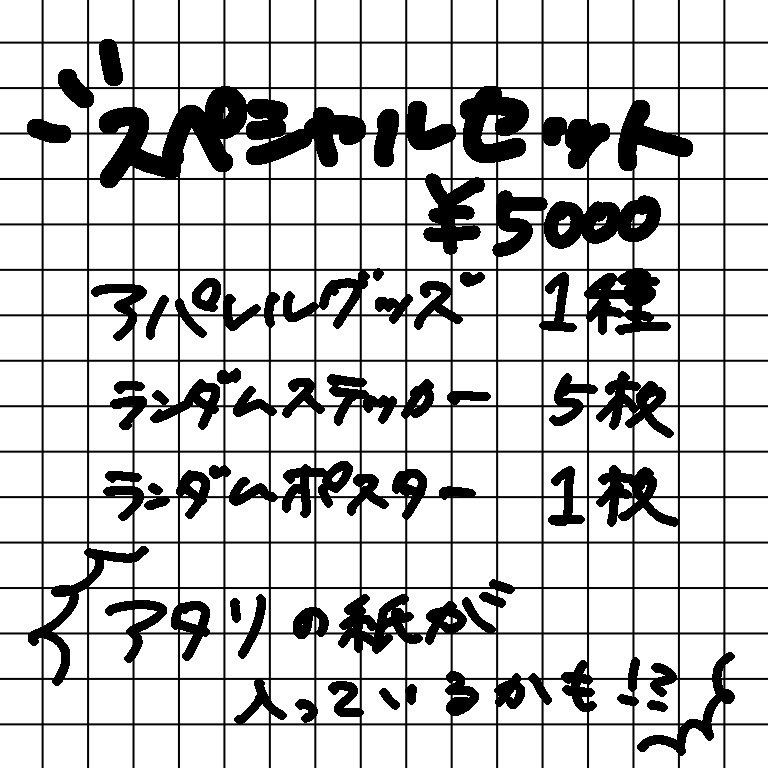 スペシャルセット
¥5000
アパレルグッズ 1種
ランダムステッカー 5枚
ランダムポスター 1枚
アタリの紙が
入っているかも!?